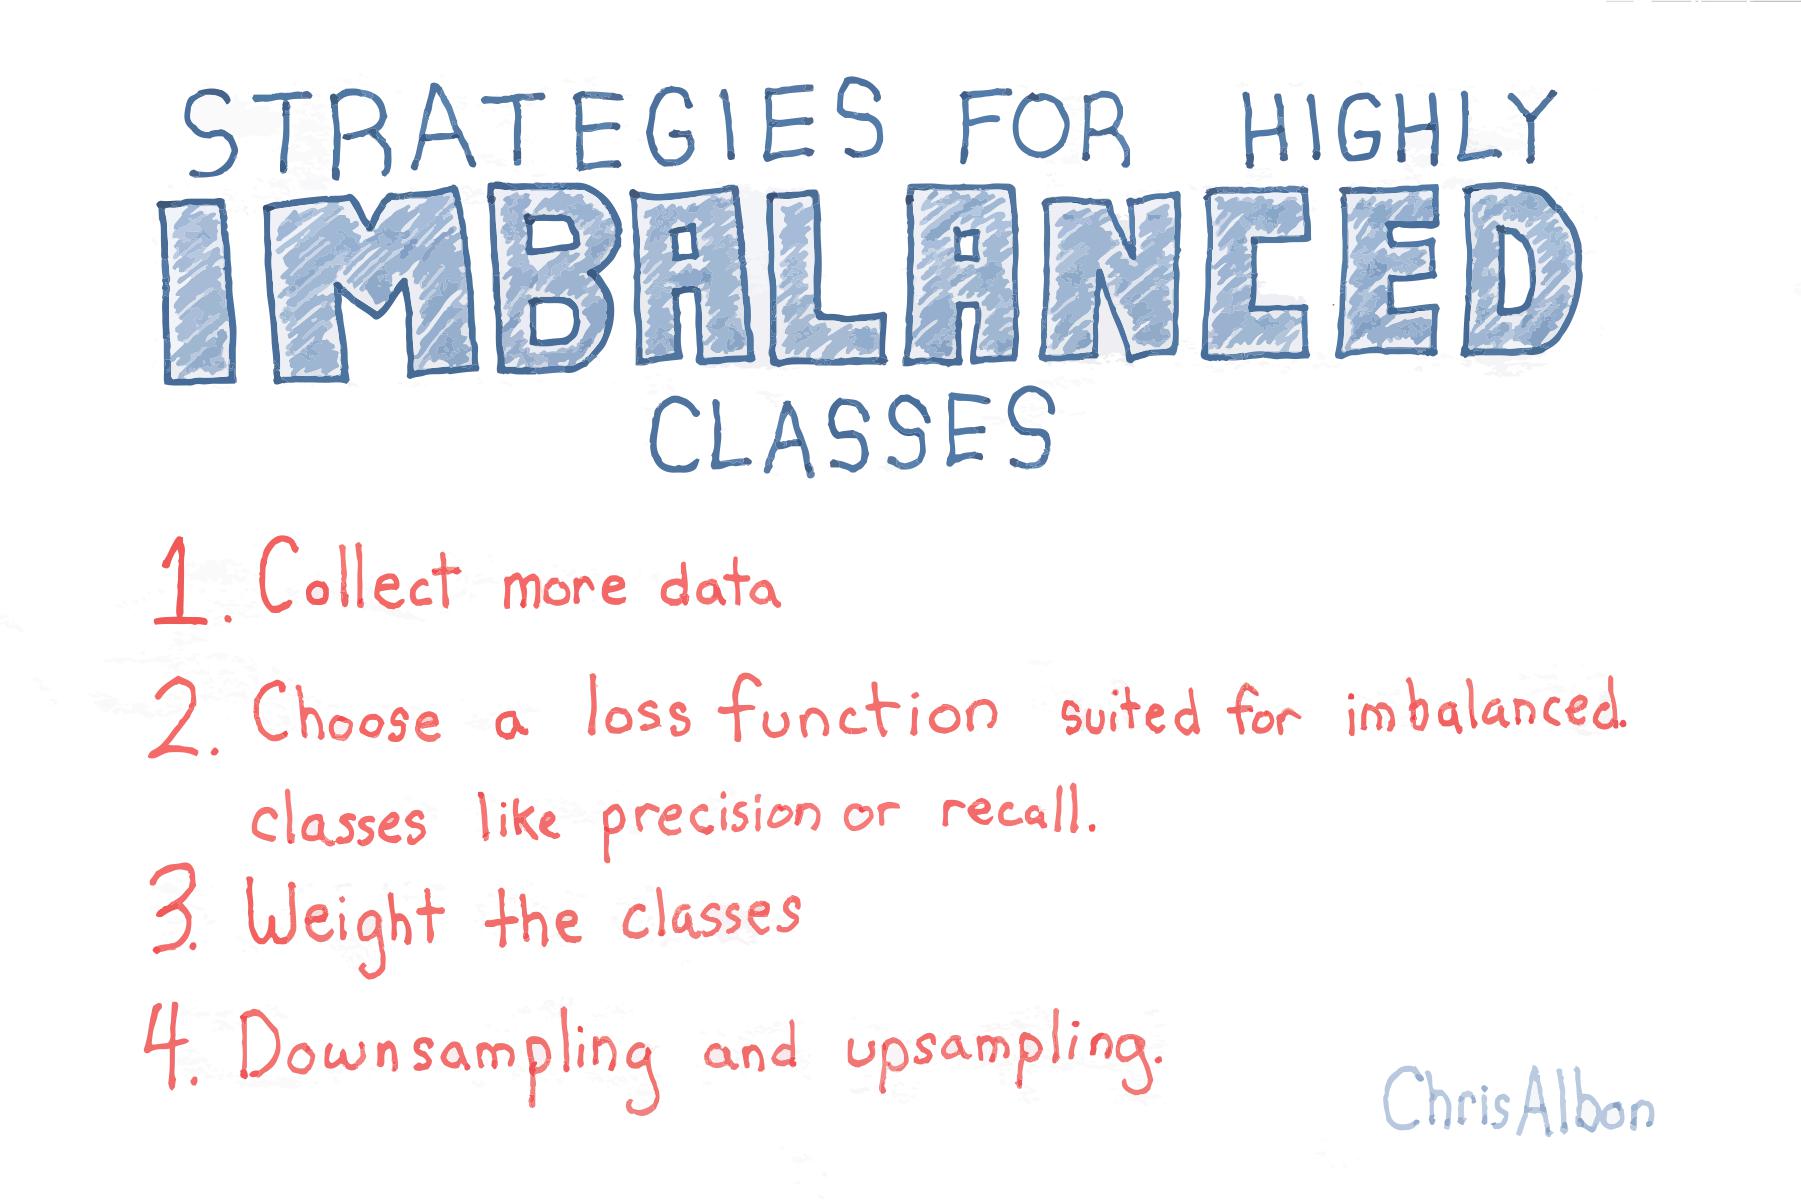 STRATEGIES FOR HIGHLY
IMBALANCED
CLASSES
1. Collect more data
2. Choose a loss function suited for imbalanced.
classes like precision or recall.
3. Weight the classes
4. Downsampling and upsampling.
Chris Albon